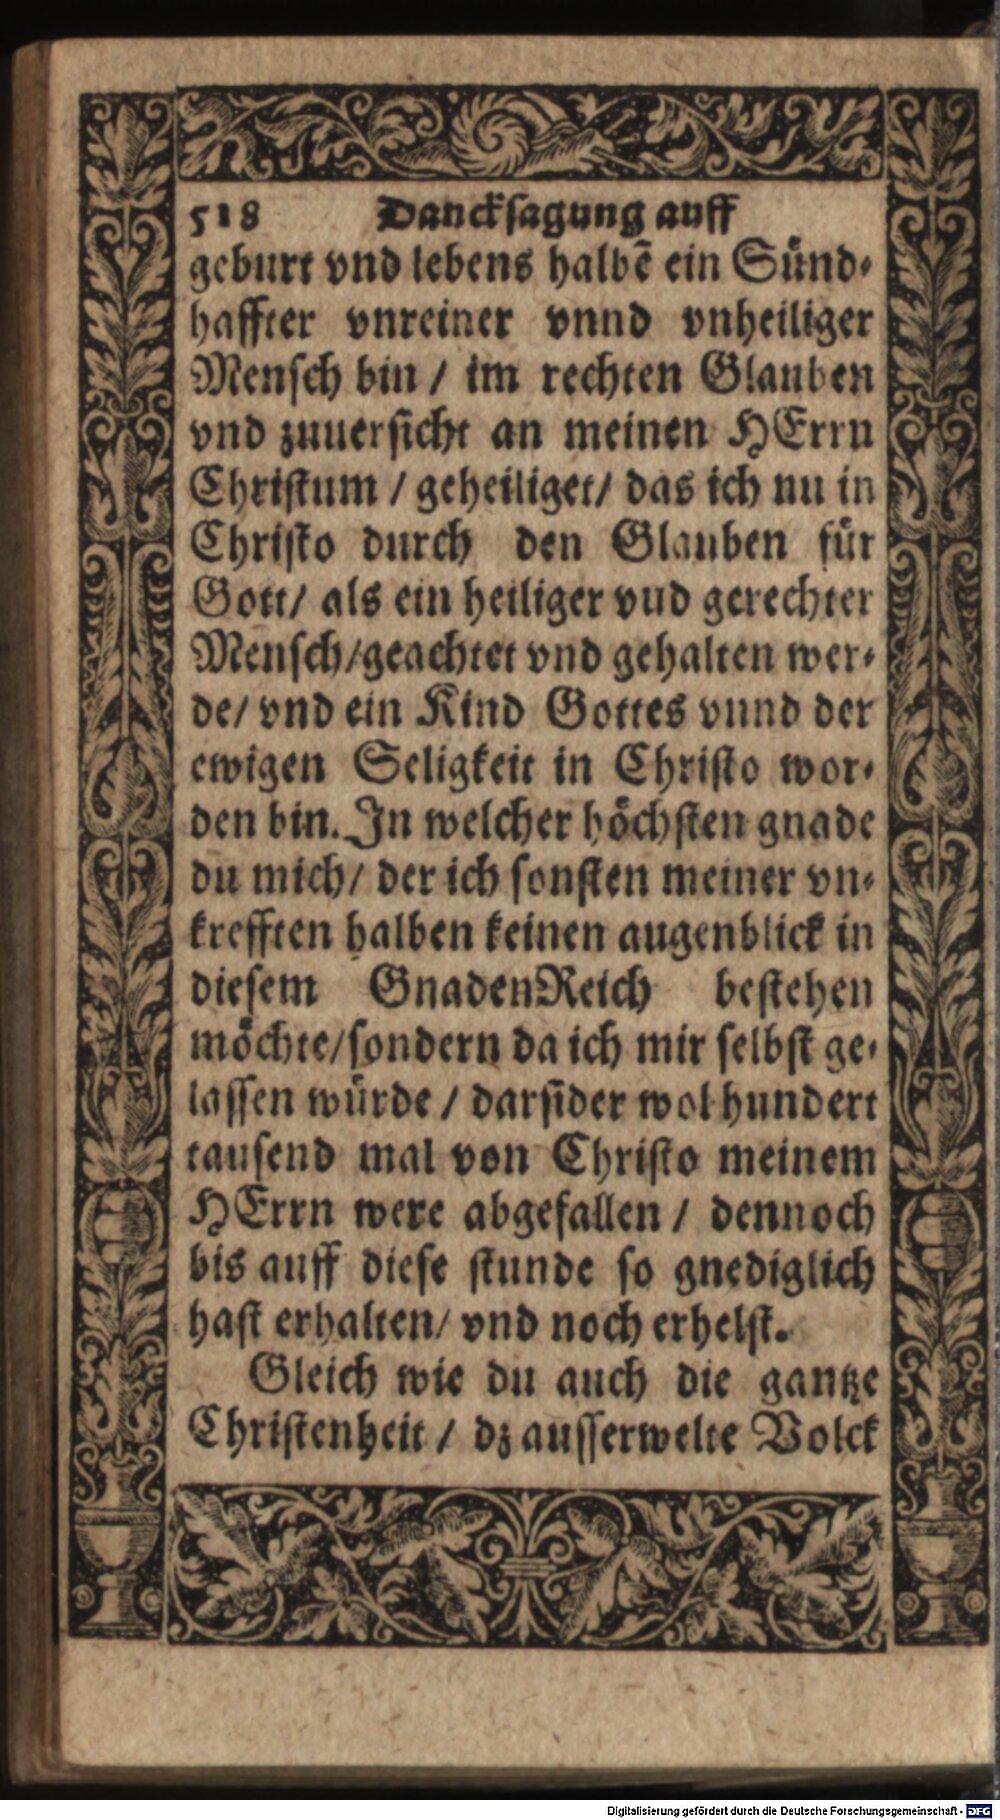 518 Danckſagung auff
geburt vnd lebens halbē ein Sünd⸗
haffter vnreiner vnnd vnheiliger
Menſch bin / im rechten Glauben
vnd zuuerſicht an meinen HErrn
Chriſtum / geheiliget / das ich nu in
Chriſto durch den Glauben für
Gott / als ein heiliger vnd gerechter
Menſch / geachtet vnd gehalten wer⸗
de / vnd ein Kind Gottes vnnd der
ewigen Seligkeit in Chriſto wor⸗
den bin. In welcher höchſten gnade
du mich / der ich ſonſten meiner vn⸗
krefften halben keinen augenblick in
dieſem GnadenReich beſtehen
möchte / ſondern da ich mir ſelbſt ge⸗
laſſen würde / darüder wol hundert
tauſend mal von Chriſto meinem
HErrn were abgefallen / dennoch
bis auff dieſe ſtunde ſo gnediglich
haſt erhalten / vnd noch erhelſt.
Gleich wie du auch die gantze
Chriſtenheit / dz auſſerwelte Volck
Digitalisierung gefördert durch die Deutsche Forschungsgemeinschaft - DFG